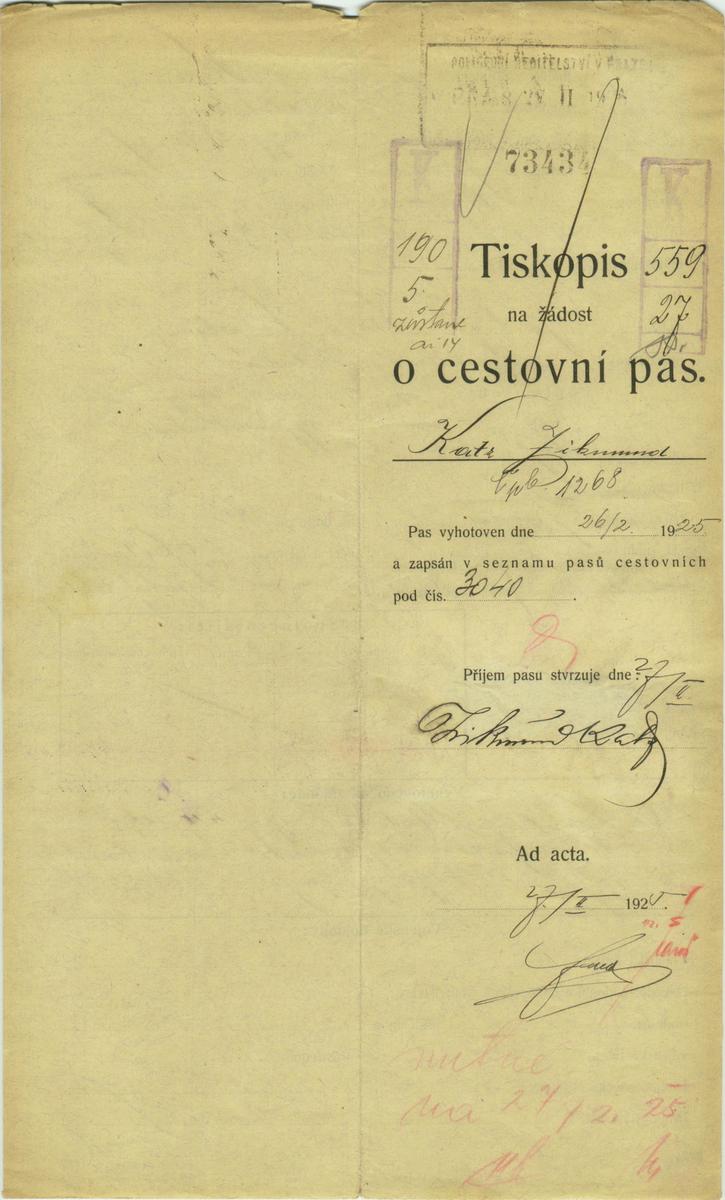 POLICEJNÍ ŘEDITELSTVÍ V PRAZE
II
73434
K
K
190
5
Tiskopis
559
27
na žádost
zůstane
o cestovní pas.
Katz Zikmund
čpb. 1268
Pas vyhotoven dne 26/2. 1925
a zapsán v seznamu pasů cestovních
pod čís. 3040 .
Příjem pasu stvrzuje dne: 27/II
Zikmund Katz
Ad acta.
27/II 1925.
nutné
na 27/2. 25